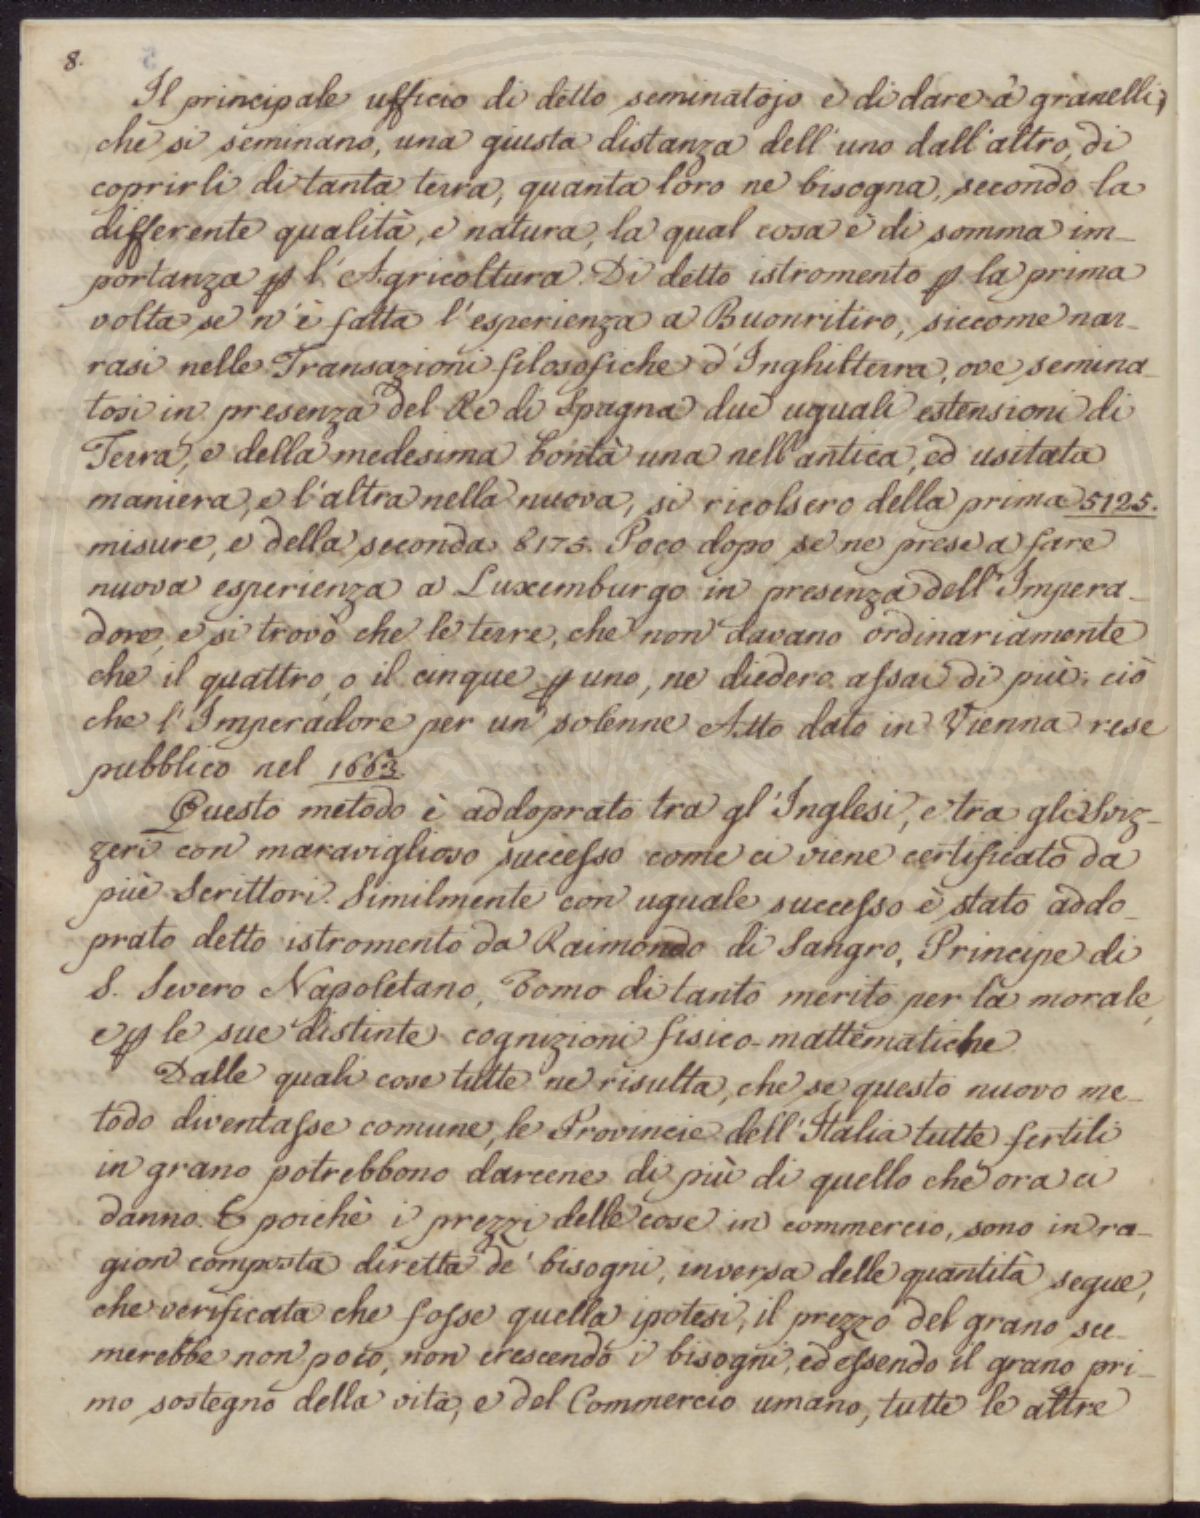 8.
Il principale ufficio di detto seminatojo è di dare a' granelli,
che si seminano, una giusta distanza dell'uno dall'altro, di
coprirli di tanta terra, quanta loro ne bisogna, secondo la
differente qualità, e natura, la qual cosa è di somma im-
portanza ꝑ l'Agricoltura. Di detto istromento ꝑ la prima
volta se n'è fatta l'esperienza a Buonritiro, siccome nar-
rasi nelle Transazioni filosofiche d'Inghilterra, ove semina-
tosi in presenza del Re di Spagna due uguali estensioni di
Terra, e della medesima bontà una nell'antica, ed usitata
maniera, e l'altra nella nuova, si ricolsero della prima 5125.
misure, e della seconda 8175. Poco dopo se ne prese a fare
nuova esperienza a Luxemburgo in presenza dell'Impera-
dore, e si trovò che le terre, che non davano ordinariamente
che il quattro, o il cinque ꝑ uno, ne diedero assai di più; ciò
che l'Imperadore per un solenne Atto dato in Vienna rese
pubblico nel 1663.
Questo metodo è addoprato tra gl'Inglesi, e tra gli Sviz-
zeri con maraviglioso successo come ci viene certificato da
più Scrittori. Similmente con uguale successo è stato addo-
prato detto istromento da Raimondo di Sangro, Principe di
S. Severo Napoletano, Uomo di tanto merito per la morale,
e ꝑ le sue distinte cognizioni fisico-mattematiche
Dalle quali cose tutte ne risulta, che se questo nuovo me-
todo diventasse comune, le Provincie dell'Italia tutte fertili
in grano potrebbono darcene di più di quello che ora ci
danno. E poichè i prezzi delle cose in commercio, sono in ra-
gion composta diretta de' bisogni, inversa delle quantità segue,
che verificata che fosse quella ipotesi, il prezzo del grano sce-
merebbe non poco, non crescendo i bisogni, ed essendo il grano pri-
mo sostegno della vita, e del Commercio umano, tutte le altre